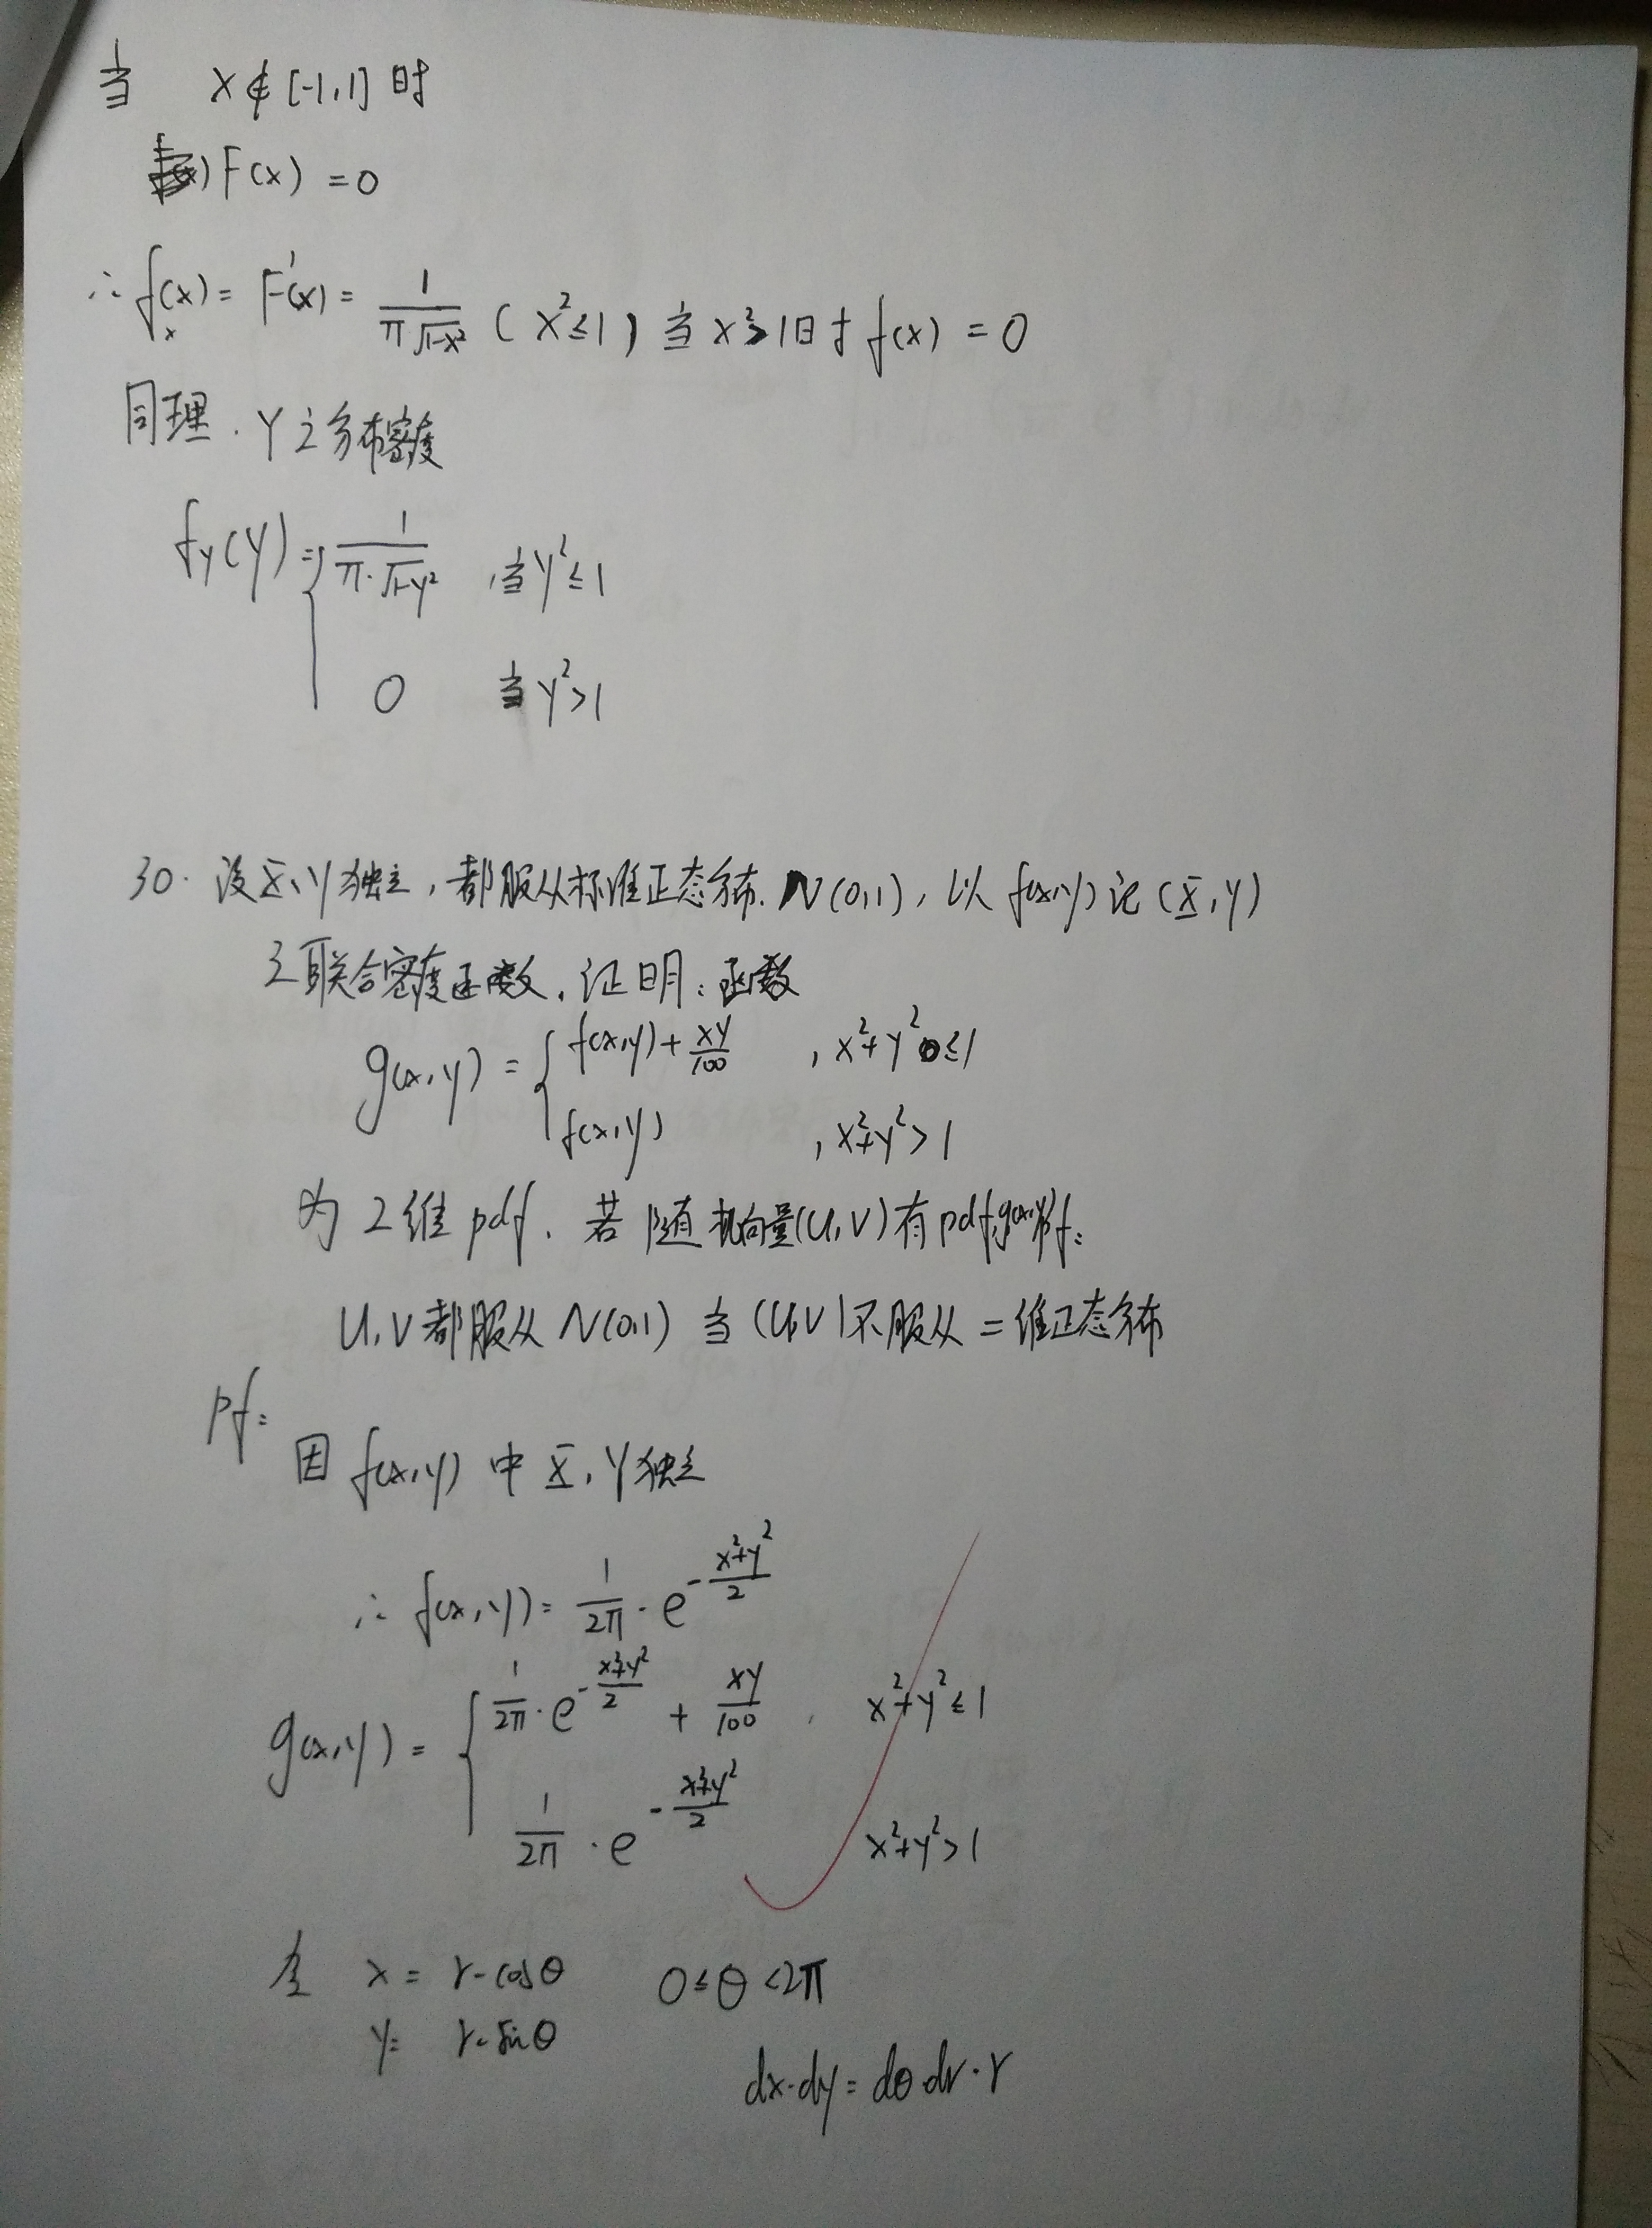 当 X∉[-1,1] 时
F(x) = 0
∴ f_x(x) = F'(x) = 1/(π√(1-x²)) (x²≤1) 当 x²>1时 f(x) = 0
同理. Y之分布密度
f_Y(y) = { 1/(π·√(1-y²)) , 当y²≤1
0 当 y²>1
30. 设X、Y独立, 都服从标准正态分布. N(0,1), 以 f(x,y) 记 (X,Y)
之联合密度函数. 证明: 函数
g(x,y) = { f(x,y) + xy/100 , x²+y²≤1
f(x,y) , x²+y²>1
为 2维 pdf. 若随机向量(U,V)有pdf g(x,y)
U,V都服从 N(0,1) 当 (U,V)不服从二维正态分布
pf:
因 f(x,y) 中 X, Y独立
∴ f(x,y) = 1/(2π) · e^(-(x²+y²)/2)
g(x,y) = { 1/(2π) · e^(-(x²+y²)/2) + xy/100 , x²+y²≤1
1/(2π) · e^(-(x²+y²)/2) x²+y²>1
令 x = r·cosθ 0≤θ<2π
y = r·sinθ
dx·dy = dθ·dr·r